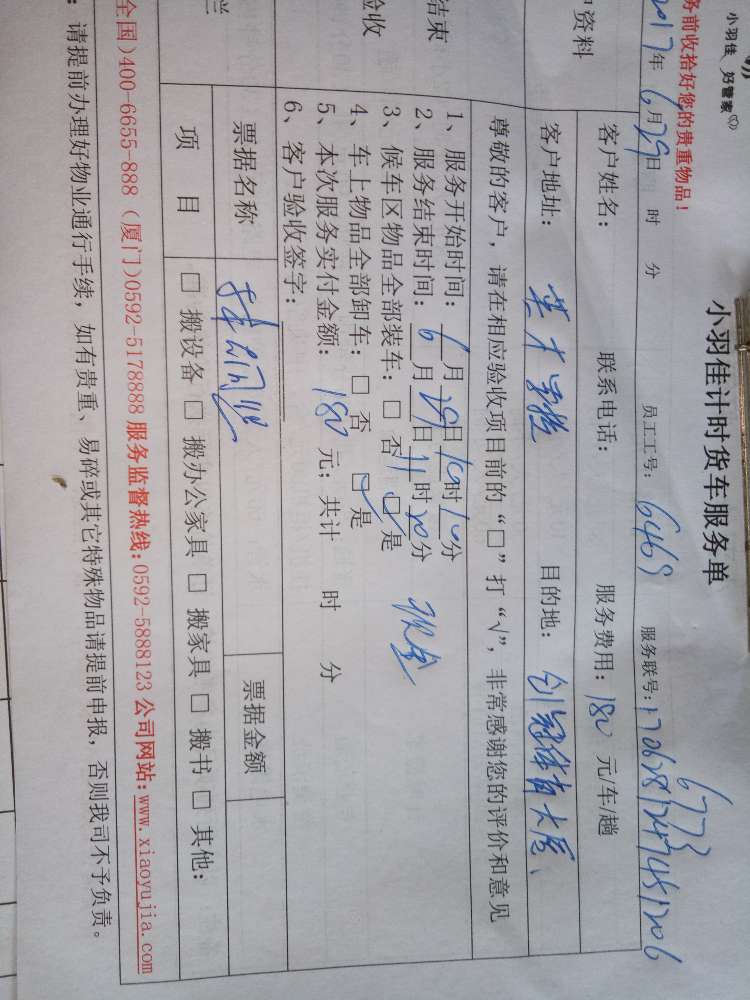 小羽佳 好管家
务前收拾好您的贵重物品！
小羽佳计时货车服务单
2017年 6月29日 时 分 员工工号： 6469 服务联号：
6773
客户姓名： 联系电话： 服务费用：180 元/车/趟
户资料
客户地址： 目的地：
尊敬的客户，请在相应验收项目前的“□”打“√”，非常感谢您的评价和意见
结束
验收
1、服务开始时间：6月29日10时10分
2、服务结束时间：6月29日11时20分
3、候车区物品全部装车：□ 否 □是
4、车上物品全部卸车：□ 否 □是
现金
5、本次服务实付金额：180 元；共计 时 分
6、客户验收签字：
票据名称 票据金额
栏
项 目 □ 搬设备 □ 搬办公家具 □ 搬家具 □ 搬书 □ 其他：
全国)400-6655-888 (厦门)0592-5178888 服务监督热线:0592-5888123 公司网站:www.xiaoyujia.com
：请提前办理好物业通行手续，如有贵重、易碎或其它特殊物品请提前申报，否则我司不予负责。